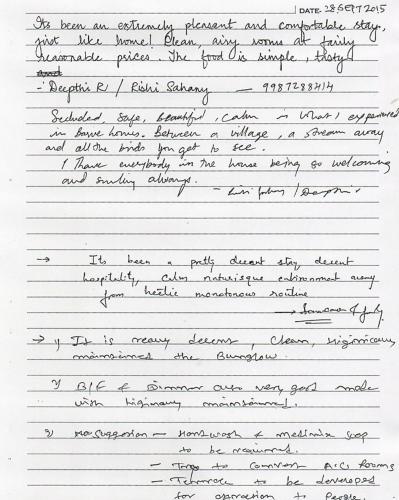 DATE: 28 SEPT 2015
Its been an extremely pleasant and comfortable stay,
just like home! Clean, airy rooms at fairly
reasonable prices. The food is simple, tasty
and
- Deepthi R / Rishi Sahany — 9987288414
Secluded, safe, beautiful, calm is what I experienced
in homes. Between a village, a stream away
and all the birds you get to see.
I thank everybody in the house being so welcoming
and smiling always.
→ Its been a pretty decent stay, decent
hospitality, calm naturisque environment away
from hectic monotonous routine
→ 1) It is really decent, Clean, higienically
maintained the Bunglow.
2) B/F & Dinnar also very good made
with maintained.
3) — Handwash & medimix soap
to be required.
— to Common A.C. Rooms
— Terrace to be developed
for to People.